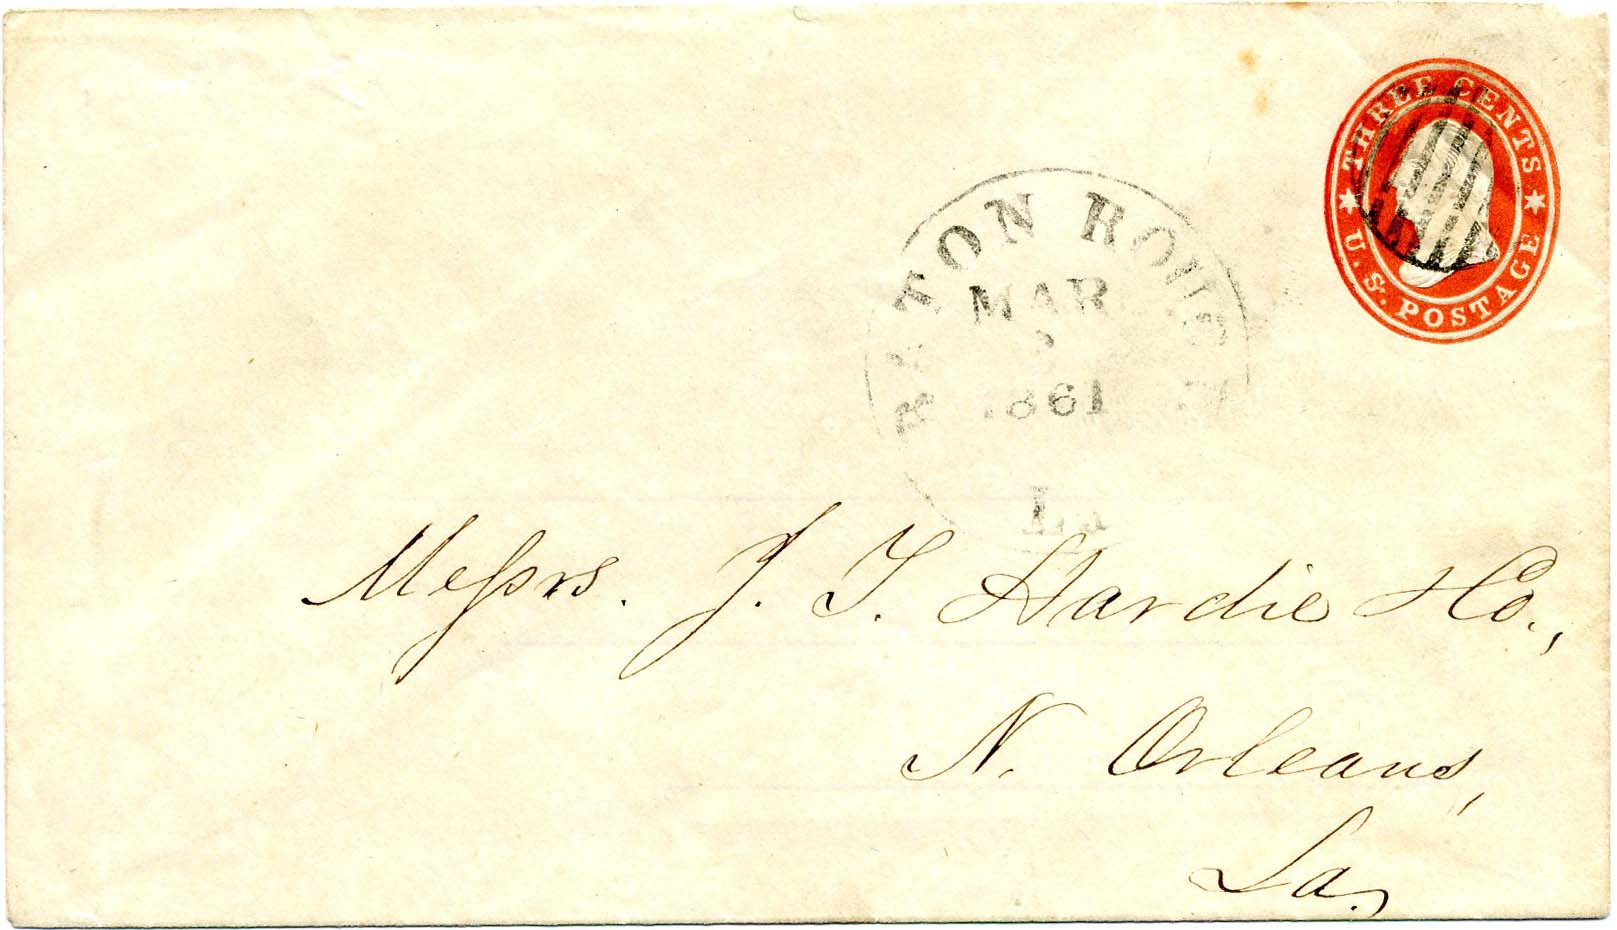 THREE CENTS
U.S. POSTAGE
BATON ROUGE
MAR
1861
La
Messrs. J. T. Hardie & Co.,
N. Orleans,
La.,